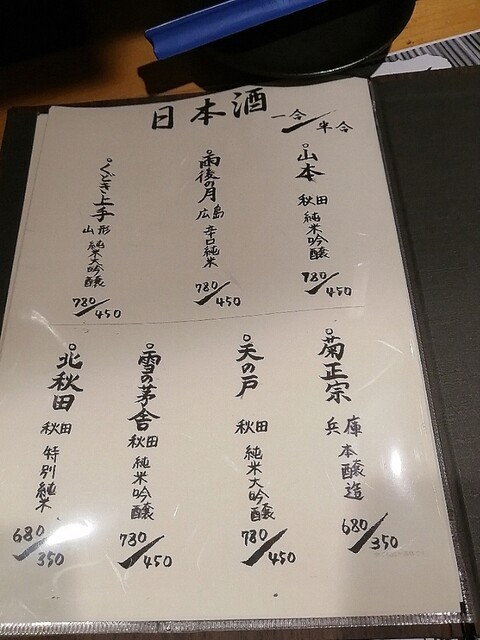 日本酒 一合/半合
山本
秋田 純米吟醸
780/450
雨後の月
広島 辛口純米
780/450
くどき上手
山形 純米大吟醸
780/450
菊正宗
兵庫 本醸造
680/350
天の戸
秋田 純米大吟醸
780/450
雪の茅舎
秋田 純米吟醸
780/450
北秋田
秋田 特別純米
680/350